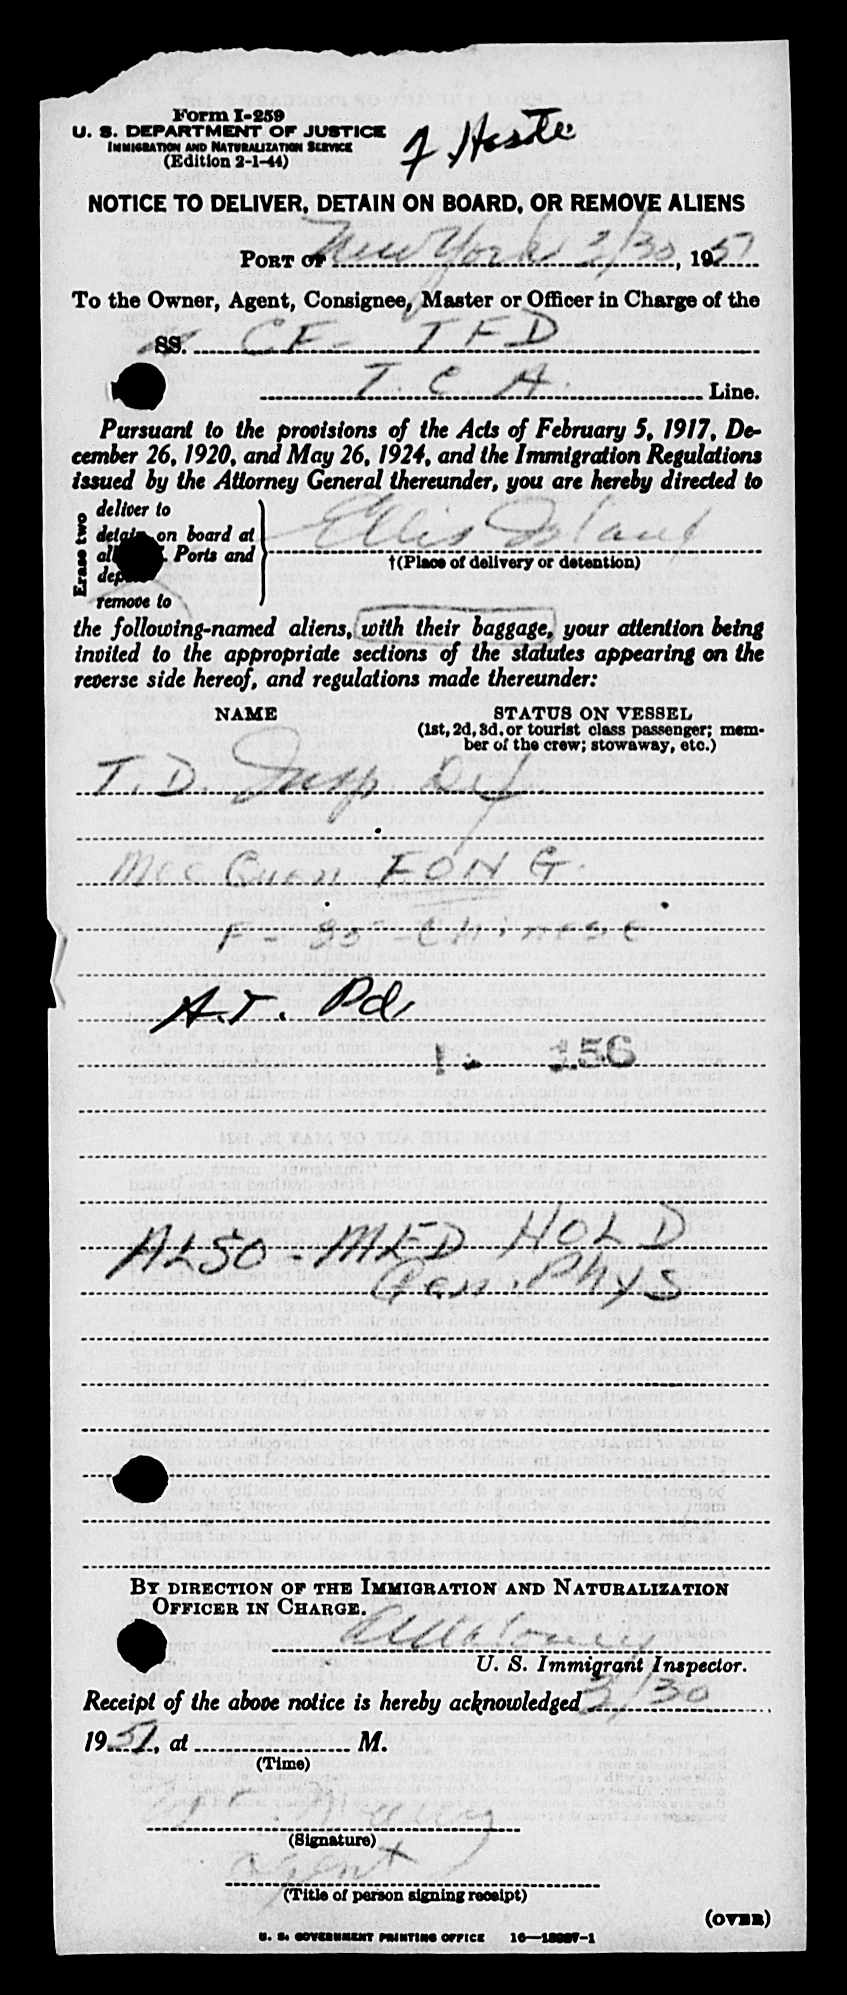 Form I-259
U. S. DEPARTMENT OF JUSTICE
IMMIGRATION AND NATURALIZATION SERVICE
(Edition 2-1-44)
NOTICE TO DELIVER, DETAIN ON BOARD, OR REMOVE ALIENS
PORT OF New York 3/30, 1951
To the Owner, Agent, Consignee, Master or Officer in Charge of the
SS. CF- TFD
T. C. A. Line.
Pursuant to the provisions of the Acts of February 5, 1917, De-
cember 26, 1920, and May 26, 1924, and the Immigration Regulations
issued by the Attorney General thereunder, you are hereby directed to
Erase two
deliver to
detain on board at
Ports and
remove to
Ellis Island
†(Place of delivery or detention)
the following-named aliens, with their baggage, your attention being
invited to the appropriate sections of the statutes appearing on the
reverse side hereof, and regulations made thereunder:
NAME STATUS ON VESSEL
(1st, 2d, 3d, or tourist class passenger; mem-
ber of the crew; stowaway, etc.)
T. D. Insp. Def
FONG.
F - 20 - Chinese
A.T. Pd
156
ALSO - MED HOLD
Gen. Phys
BY DIRECTION OF THE IMMIGRATION AND NATURALIZATION
OFFICER IN CHARGE.
U. S. Immigrant Inspector.
Receipt of the above notice is hereby acknowledged 3/30
1951, at M.
(Time)
(Signature)
agent
(Title of person signing receipt)
(OVER)
U. S. GOVERNMENT PRINTING OFFICE